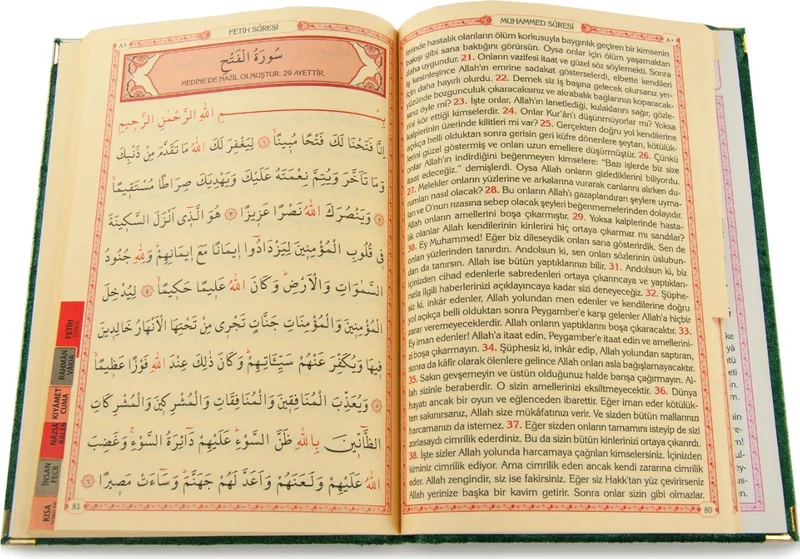 ٨١
FETİH SÛRESİ
سُورَةُ الْفَتْحِ
MEDİNE'DE NAZİL OLMUŞTUR. 29 AYETTİR.
بِسْمِ اللّٰهِ الرَّحْمٰنِ الرَّحِيمِ
اِنَّا فَتَحْنَا لَكَ فَتْحًا مُبِينًا ﴿١﴾ لِيَغْفِرَ لَكَ اللّٰهُ مَا تَقَدَّمَ مِنْ ذَنْبِكَ
وَمَا تَاَخَّرَ وَيُتِمَّ نِعْمَتَهُ عَلَيْكَ وَيَهْدِيَكَ صِرَاطًا مُسْتَقِيمًا
﴿٢﴾ وَيَنْصُرَكَ اللّٰهُ نَصْرًا عَزِيزًا ﴿٣﴾ هُوَ الَّذِى اَنْزَلَ السَّكِينَةَ
فِى قُلُوبِ الْمُؤْمِنِينَ لِيَزْدَادُوا اِيمَانًا مَعَ اِيمَانِهِمْ وَلِلّٰهِ جُنُودُ
السَّمٰوَاتِ وَالْاَرْضِ وَكَانَ اللّٰهُ عَلِيمًا حَكِيمًا ﴿٤﴾ لِيُدْخِلَ
الْمُؤْمِنِينَ وَالْمُؤْمِنَاتِ جَنَّاتٍ تَجْرِى مِنْ تَحْتِهَا الْاَنْهَارُ خَالِدِينَ
فِيهَا وَيُكَفِّرَ عَنْهُمْ سَيِّئَاتِهِمْ وَكَانَ ذٰلِكَ عِنْدَ اللّٰهِ فَوْزًا عَظِيمًا
﴿٥﴾ وَيُعَذِّبَ الْمُنَافِقِينَ وَالْمُنَافِقَاتِ وَالْمُشْرِكِينَ وَالْمُشْرِكَاتِ
الظَّانِّينَ بِاللّٰهِ ظَنَّ السَّوْءِ عَلَيْهِمْ دَائِرَةُ السَّوْءِ وَغَضِبَ
اللّٰهُ عَلَيْهِمْ وَلَعَنَهُمْ وَاَعَدَّ لَهُمْ جَهَنَّمَ وَسَاءَتْ مَصِيرًا ﴿٦﴾
81
FETİH
RAHMÂN
VÂKIA
KIYÂMET
CUMA
NAZİA
KALEM
İNSAN
FECR
KISA
MUHAMMED SÛRESİ
٨٠
lerinde hastalık olanların ölüm korkusuyla baygınlık geçiren bir kimsenin
bakışı gibi sana baktığını görürsün. Oysa onlar için ölüm yaşamaktan
daha uygundur. 21. Onların vazifesi itaat ve güzel söz söylemekti. Sonra
iş kesinleşince Allah'ın emrine sadakat gösterselerdi, elbette kendileri
için daha hayırlı olurdu. 22. Demek siz iş başına gelecek olursanız yer-
yüzünde bozgunculuk çıkaracaksınız ve akrabalık bağlarınızı koparacak-
sınız öyle mi? 23. İşte onlar, Allah'ın lanetlediği, kulaklarını sağır, gözle-
rini kör ettiği kimselerdir. 24. Onlar Kur'ân'ı düşünmüyorlar mı? Yoksa
kalplerinin üzerinde kilitleri mi var? 25. Gerçekten doğru yol kendilerine
açıkça belli olduktan sonra gerisin geri küfre dönenlere şeytan, kötülük-
lerini güzel göstermiş ve onları uzun emellere düşürmüştür. 26. Çünkü
onlar Allah'ın indirdiğini beğenmeyen kimselere: "Bazı işlerde biz size
itaat edeceğiz." demişlerdi. Oysa Allah onların gizlediklerini biliyordu.
27. Melekler onların yüzlerine ve arkalarına vurarak canlarını alırken du-
rumları nasıl olacak? 28. Bu onların Allah'ı gazaplandıran şeylere uyma-
ları ve O'nun rızasına sebep olacak şeyleri beğenmemelerinden dolayıdır.
Allah onların amellerini boşa çıkarmıştır. 29. Yoksa kalplerinde hasta-
lık olanlar Allah kendilerinin kinlerini hiç ortaya çıkarmaz mı sandılar?
30. Ey Muhammed! Eğer biz dileseydik onları sana gösterirdik. Sen de
onları yüzlerinden tanırdın. Andolsun ki, sen onları sözlerinin üslubun-
dan da tanırsın. Allah ise bütün yaptıklarınızı bilir. 31. Andolsun ki, biz
içinizden cihad edenlerle sabredenleri ortaya çıkarıncaya ve yaptıkları-
nızla ilgili haberlerinizi açıklayıncaya kadar sizi deneyeceğiz. 32. Şüphe-
siz ki, inkâr edenler, Allah yolundan men edenler ve kendilerine doğru
yol açıkça belli olduktan sonra Peygamber'e karşı gelenler Allah'a hiçbir
zarar veremeyeceklerdir. Allah onların yaptıklarını boşa çıkaracaktır. 33.
Ey iman edenler! Allah'a itaat edin, Peygamber'e itaat edin ve amellerini-
zi boşa çıkarmayın. 34. Şüphesiz ki, inkâr edip, Allah yolundan saptıran,
sonra da kâfir olarak ölenlere gelince Allah onları asla bağışlamayacaktır.
35. Sakın gevşemeyin ve üstün olduğunuz halde barışa çağırmayın. Al-
lah sizinle beraberdir. O sizin amellerinizi eksiltmeyecektir. 36. Dünya
hayatı ancak bir oyun ve eğlenceden ibarettir. Eğer iman eder kötülük-
ten sakınırsanız, Allah size mükâfatınızı verir. Ve sizden bütün mallarınızı
harcamanızı da istemez. 37. Eğer sizden onların tamamını isteyip de sizi
zorlasaydı cimrilik ederdiniz. Bu da sizin bütün kinlerinizi ortaya çıkarırdı.
38. İşte sizler Allah yolunda harcamaya çağrılan kimselersiniz. İçinizden
kiminiz cimrilik ediyor. Ama cimrilik eden ancak kendi zararına cimrilik
eder. Allah zengindir, siz ise fakirsiniz. Eğer siz Hakk'tan yüz çevirirseniz
Allah yerinize başka bir kavim getirir. Sonra onlar sizin gibi olmazlar.
80